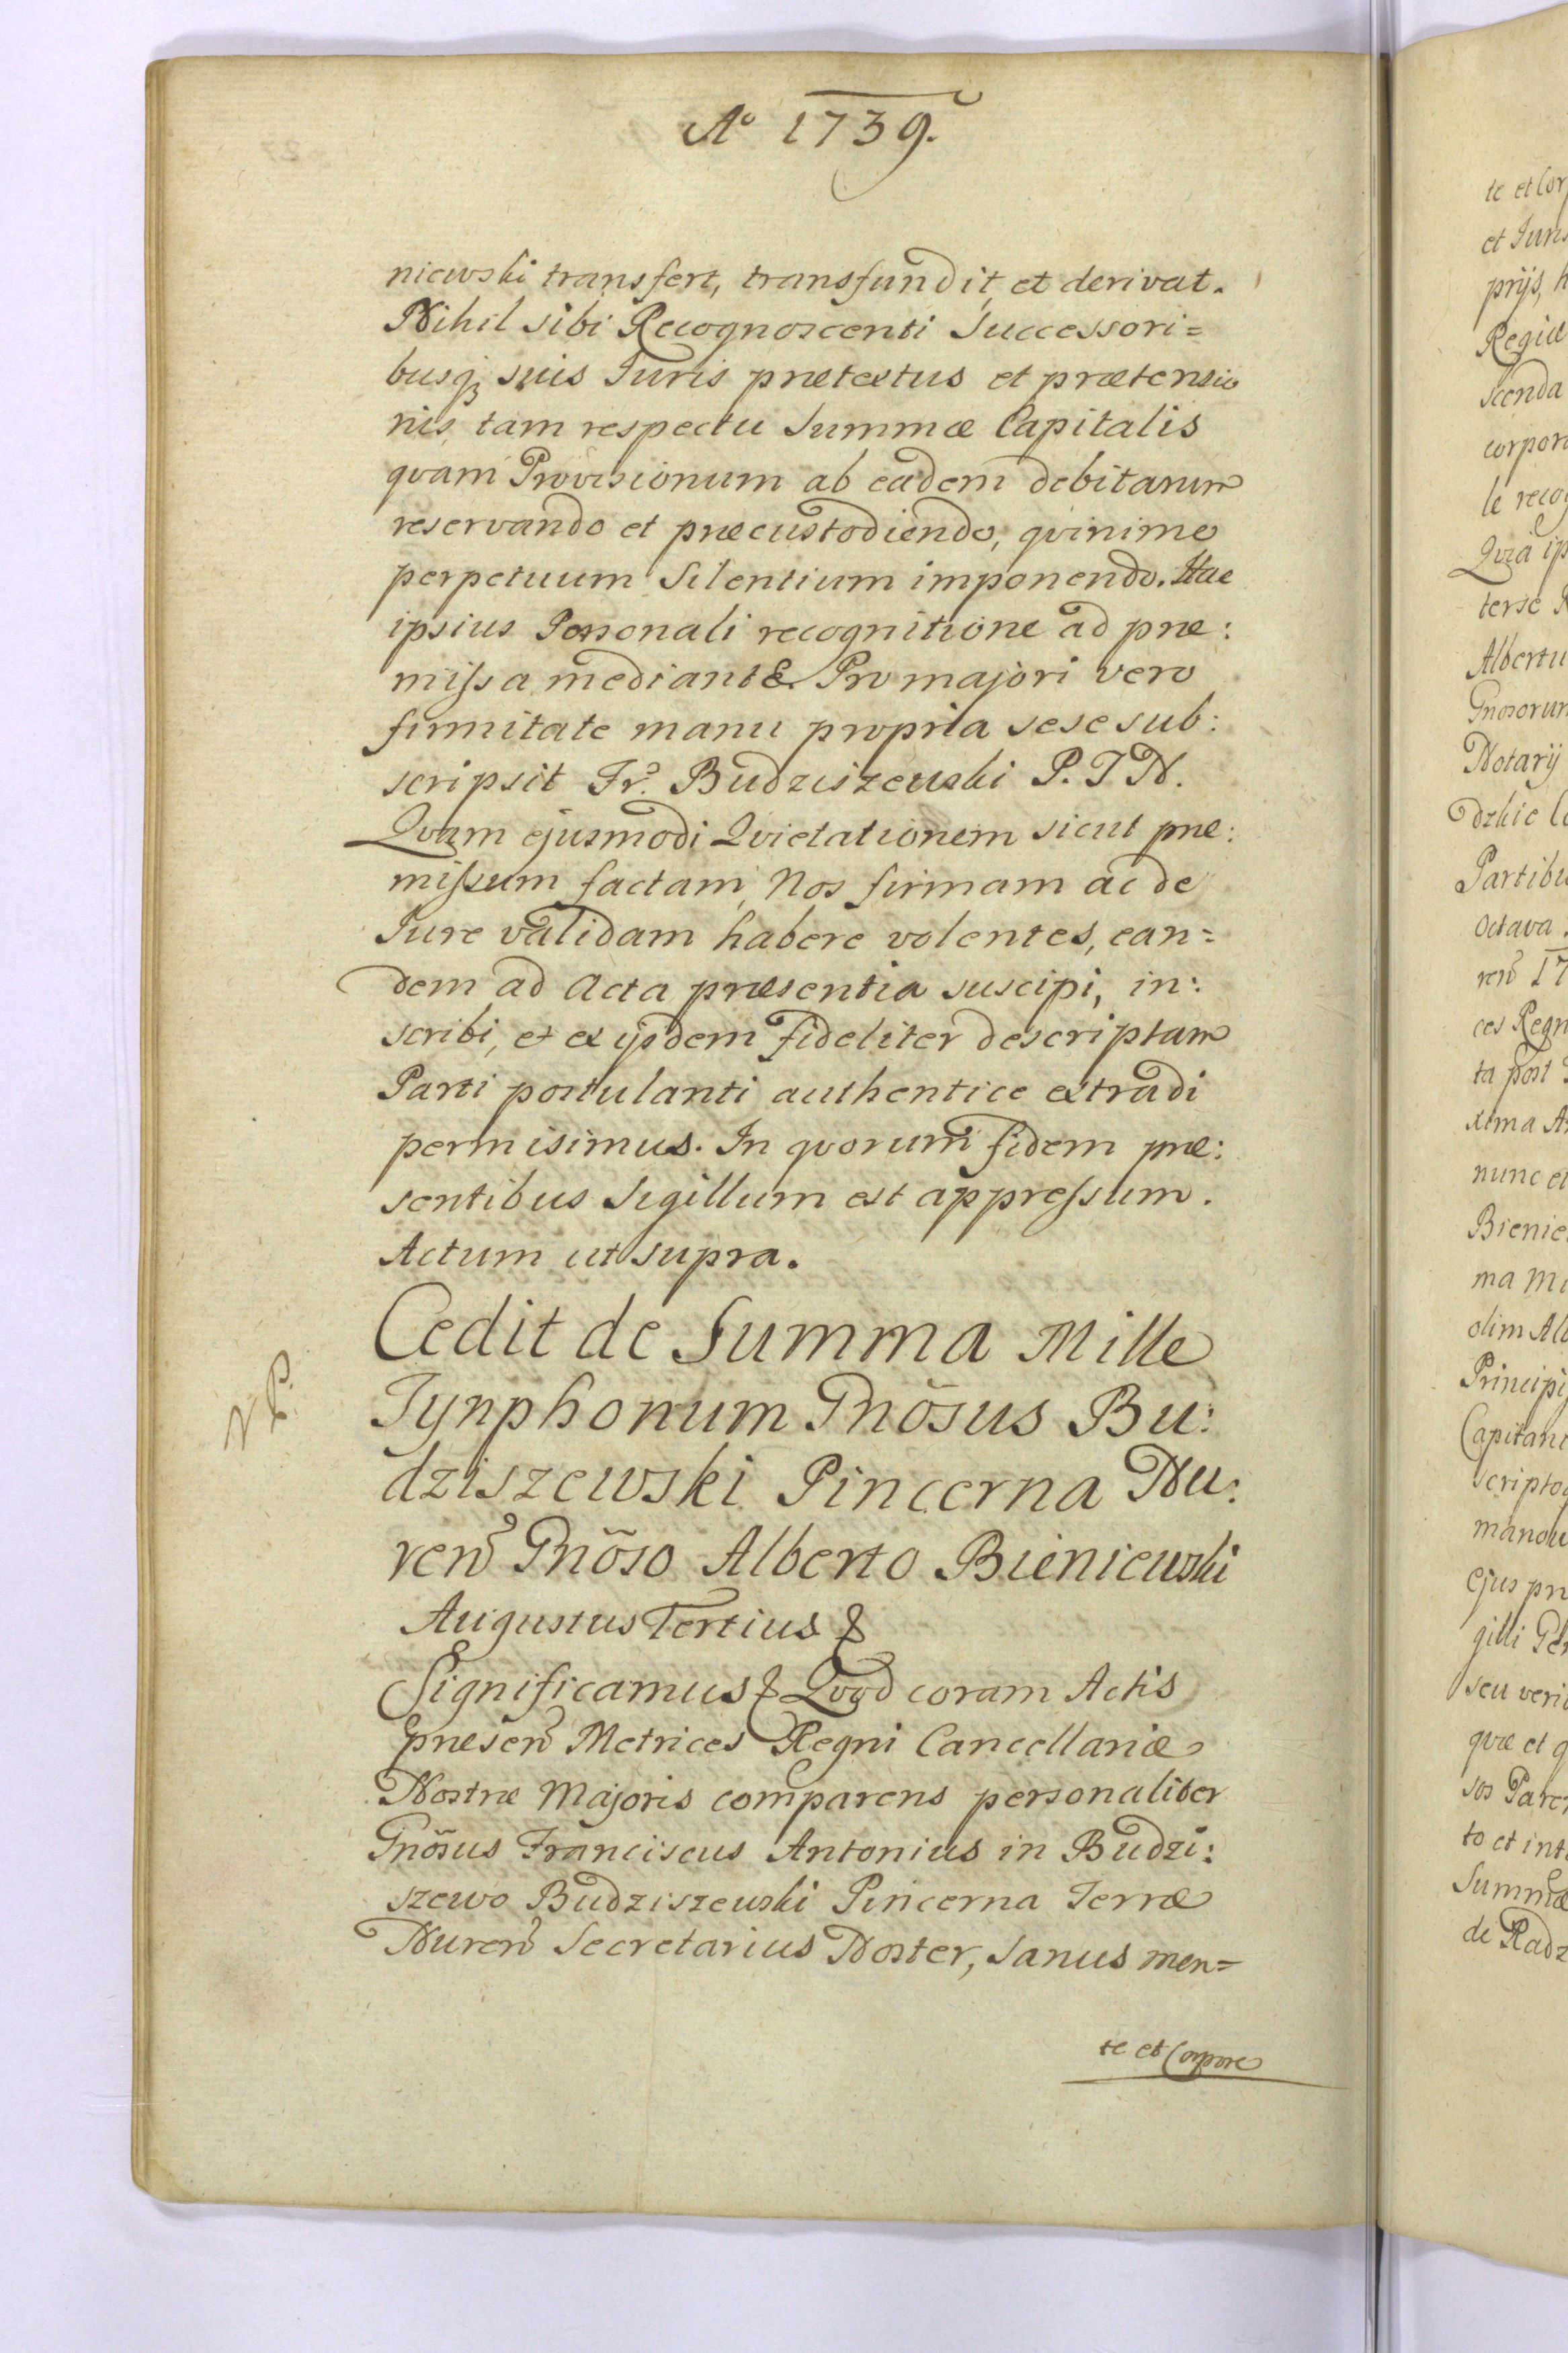 Aº 1739.
niewski transfert, transfundit, et derivat.
Nihil sibi Recognoscenti Successori=
busq₃ suis Juris prætextus et prætensio
nis tam respectu Summæ Capitalis
qvam Provisionum ab eadem debitarum
reservando et præcustodiendo, qvinimo
perpetuum Silentium imponendo. Hac
ipsius Personali recognitione ad præ:
missa mediante. Pro majori vero
firmitate manu propria sese sub:
scripsit Fr. Budziszewski P. T N.
Qvam ejusmodi Qvietationem sicut præ:
missum factam, Nos firmam ac de
Jure validam habere volentes, ean=
dem ad Acta præsentia suscipi, in:
scribi, et ex ijsdem fideliter descriptam
Parti postulanti authentice extradi
permisimus. In qvorum fidem præ:
sentibus Sigillum est appressum.
Actum ut supra.
N P.
Cedit de Summa Mille
Tynphonum Gnõsus Bu:
dziszewski Pincerna Nu:
ren Gnõso Alberto Bieniewski
Augustus Tertius &
Significamus & Qvod coram Actis
præsen Metrices Regni Cancellariæ
Nostræ Majoris comparens personaliter
Gnõsus Franciscus Antonius in Budzi:
szewo Budziszewski Pincerna Terræ
Nuren Secretarius Noster, Sanus men=
te et Corpore
te et Cor
et Juris
prijs, h
Regiæ
scenda
corpor
le reco
Qvia ip
terse R
Albertu
Gnosorum
Notarij
dzkie
Partibu
Octava
ren 17
ces Regn
ta post
xima A
nunc et
Bienie
ma Mi
olim Al
Principi
Capitane
scripto
manou
Ejus pr
gilli Pe
seu veri
qvæ et q
sos Paren
to et int
Summæ
de Radz